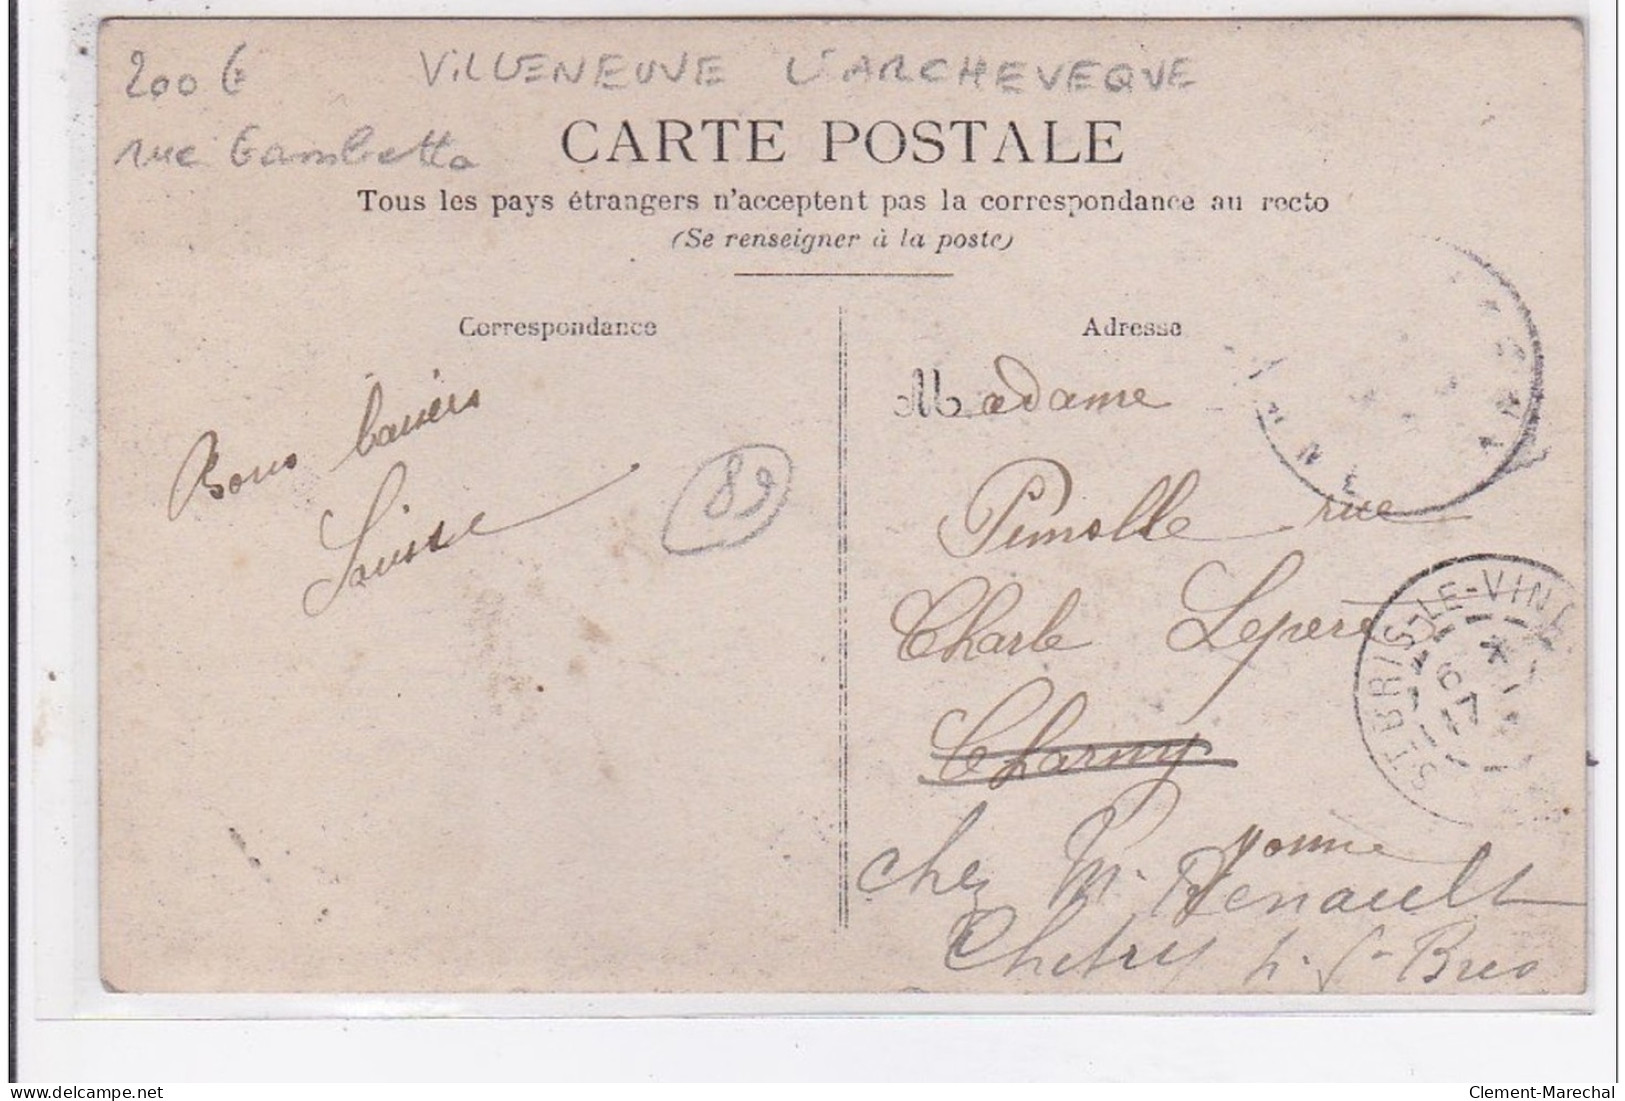 200 €
VILLENEUVE L'ARCHEVEQUE
rue Gambetta
CARTE POSTALE
Tous les pays étrangers n'acceptent pas la correspondance au recto
(Se renseigner à la poste)
Correspondance
Bons baisers
Louise
89
Adresse
Madame
rue
Charle Lepere
Charny
yonne
chez M. Renault
Chetry p. St Bris
ST BRIS-LE-VIN
Clement-Marechal